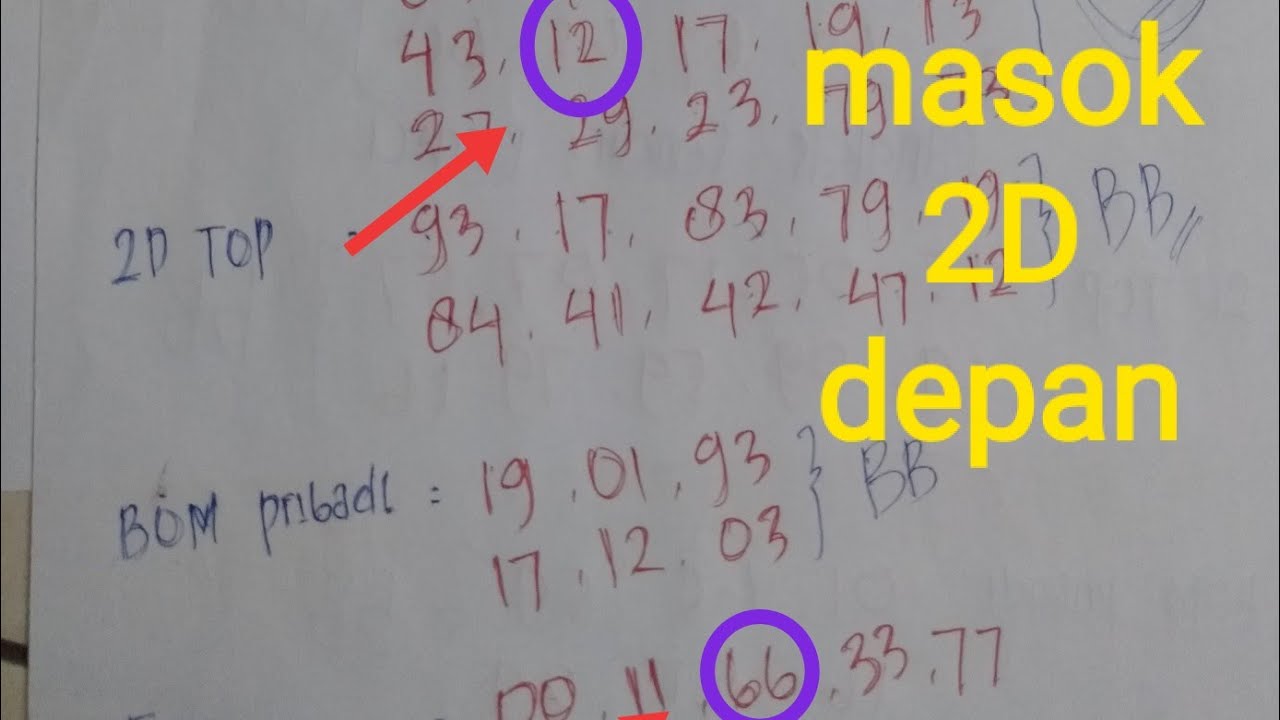 43. 12 17. 19. 13
27. 29. 23. 79
masok
2D TOP = 93. 17. 83. 79. 19 } BB
84. 41. 42. 47. 12
2D
depan
BOM pribadi = 19. 01. 93 } BB
17. 12. 03
11. 66. 33. 77